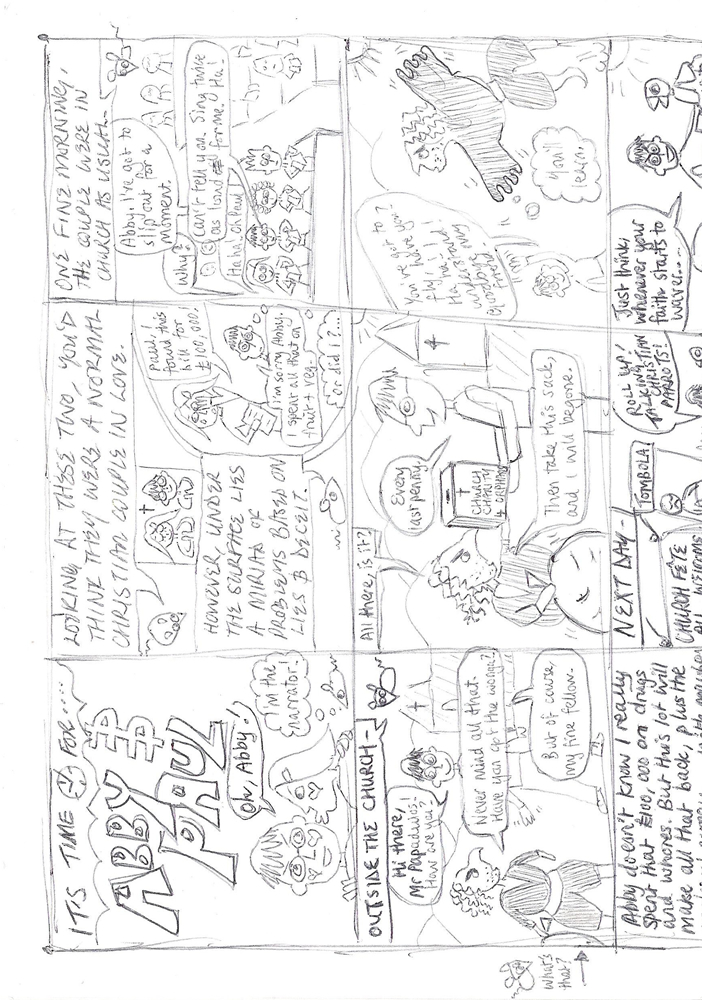 IT'S TIME FOR.....
ABBY
PAUL
Oh, Abby!
I'm the
narrator!
LOOKING AT THESE TWO, YOU'D
THINK THEY WERE A NORMAL
CHRISTIAN COUPLE IN LOVE.
HOWEVER, UNDER
THE SURFACE LIES
A MIRIAD OF
PROBLEMS BASED ON
LIES & DECEIT.
Paul, I
found this
bill for
£100,000.
I'm sorry Abby. I
spent all that on
fruit + veg.
Or did I?...
ONE FINE MORNING,
THE COUPLE WERE IN
CHURCH AS USUAL...
Abby, I've got to
slip out for a
moment.
Why?
I can't tell you. Sing twice
as loud for me. Ha!
Haha! Oh Paul!
OUTSIDE THE CHURCH -
Hi there,
Mr Papadulos.
How are you?
Never mind all that.
Have you got the wonga?
But of cause,
my fine fellow.
All there, is it?
Every
last penny.
CHURCH
CHARITY
4 ORPHANS
Then take this sack,
and I will begone.
You've got to
fly,
have you?
goodbye,
You'll
learn.
Abby doesn't know I really
spent that £100,000 on drugs
and whores. But this lot will
make all that back, plus the
NEXT DAY -
CHURCH FÊTE
ALL WELCOME
TOMBOLA
ROLL UP!
TALKING
CHRISTIAN
PARROTS!
Just think,
whenever your
faith starts to
waver....
What's
that?